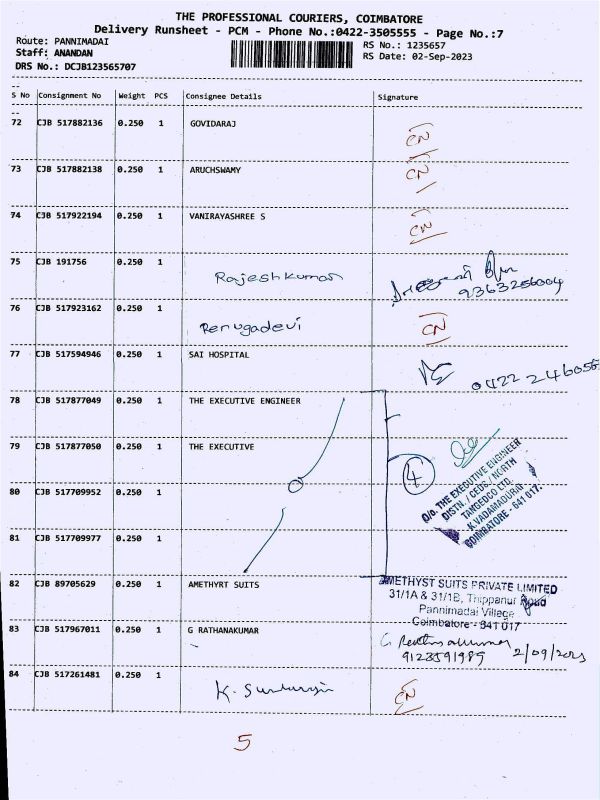 THE PROFESSIONAL COURIERS, COIMBATORE
Delivery Runsheet - PCM - Phone No.:0422-3505555 - Page No.:7
Route: PANNIMADAI
RS No.: 1235657
Staff: ANANDAN
RS Date: 02-Sep-2023
DRS No.: DCJB123565707
S No Consignment No Weight PCS Consignee Details Signature
72 CJB 517882136 0.250 1 GOVIDARAJ CN
73 CJB 517882138 0.250 1 ARUCHSWAMY CN
74 CJB 517922194 0.250 1 VANIRAYASHREE S CN
75 CJB 191756 0.250 1 Rajeshkumar
9363256004
76 CJB 517923162 0.250 1 Renugadevi CN
77 CJB 517594946 0.250 1 SAI HOSPITAL
0422 246056
78 CJB 517877049 0.250 1 THE EXECUTIVE ENGINEER
79 CJB 517877050 0.250 1 THE EXECUTIVE
4
O/o. THE EXECUTIVE ENGINEER
DISTN. / CEDS / NORTH
TANGEDCO LTD.
K.VADAMADURAI
COIMBATORE - 641 017.
80 CJB 517709952 0.250 1
81 CJB 517709977 0.250 1
82 CJB 89705629 0.250 1 AMETHYRT SUITS
AMETHYST SUITS PRIVATE LIMITED
31/1A & 31/1B, Thippanur Road
Pannimadai Village
Coimbatore - 641 017
83 CJB 517967011 0.250 1 G RATHANAKUMAR
9123591989 2/09/2023
84 CJB 517261481 0.250 1 K. CN
5